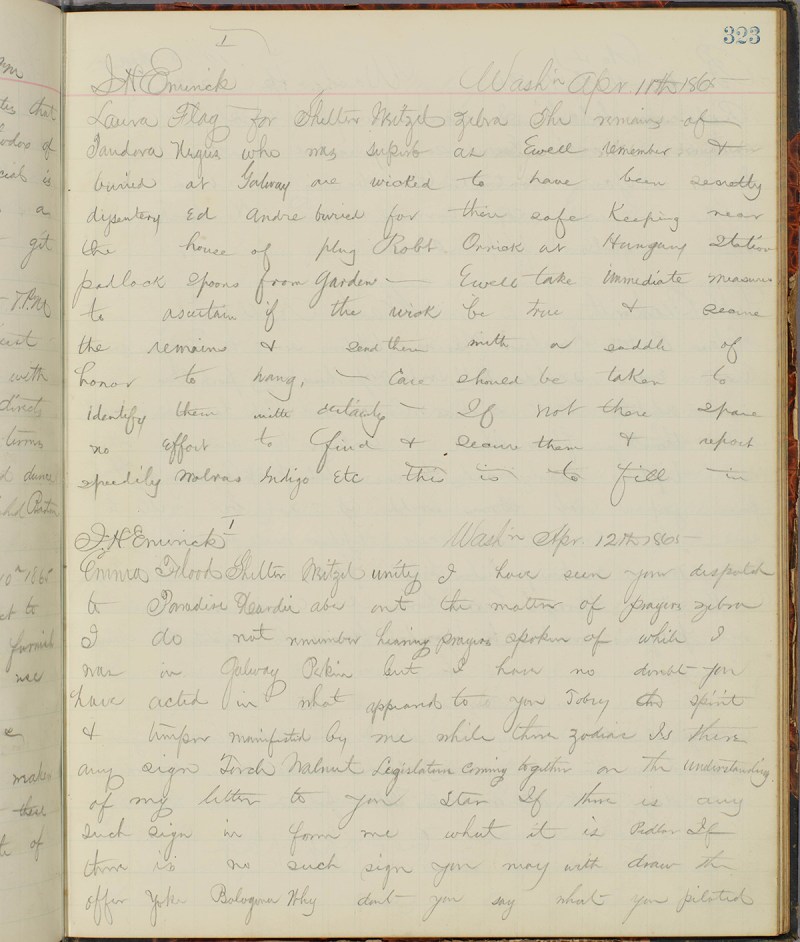 323
J H Emerick Wash'n Apr 11th 1865
Laura Flag for Shelter Weitzel Zebra The remains of
Pandora Negus who was superb as Ewell remember &
buried at Galway are wicked to have been secretly
dysentery Ed Andre buried for their safe Keeping near
the house of plug Robt. Orrick at Hungary Station
padlock Spoons from Garden — Ewell take immediate measures
to ascertain if the wick be true & secure
the remains & send them with a saddle of
honor to hang, — Care should be taken to
identify them with certainty — If not there spare
no effort to find & secure them & report
speedily walrus Indigo Etc this is to fill in
J. H Emerick Wash'n Apr. 12th 1865
Emma Flood Shelter Weitzel unity I have seen your despatch
to Paradise Hardie abe out the matter of prayers zebra
I do not remember hearing prayers spoken of while I
was in Galway Pekin but I have no doubt you
have acted in what appeared to you Tobey the spirit
& temper manifested by me while there zodiac Is there
any sign Torch Walnut Legislature coming together on the understanding
of my letter to you Star If there is any
such sign in form me what it is Pedlar If
there is no such sign you may with draw the
offer Yoke Bologna Why dont you say what you piloted